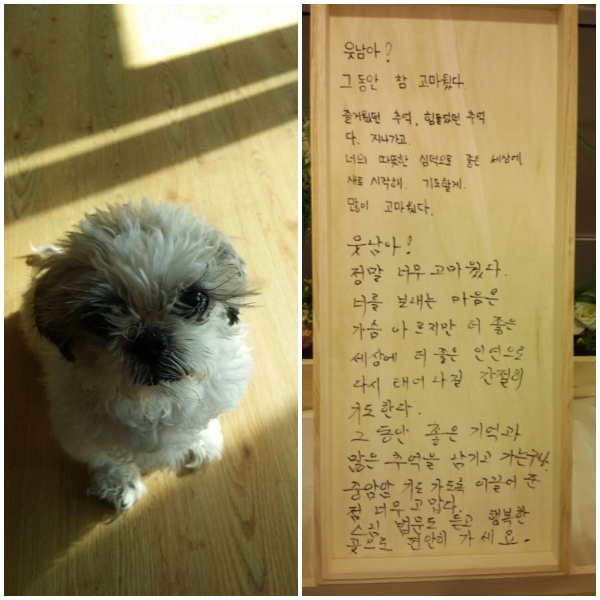 웃남아!
그동안 참 고마웠다.
즐거웠던 추억, 힘들었던 추억
다. 지나가고.
너의 따뜻한 심덕으로 좋은 세상에
새로 시작해. 기도할게.
많이 고마웠다.
웃남아!
정말 너무 고마웠다.
너를 보내는 마음은
가슴 아프지만 더 좋은
세상에 더 좋은 인연으로
다시 태어나길 간절히
기도한다.
그 동안 좋은 기억과
많은 추억을 남기고 가는구나.
중암암 기도 가도록 이끌어 준
점 너무 고맙다.
스님 법문도 듣고 행복한
곳으로 편안히 가세요.